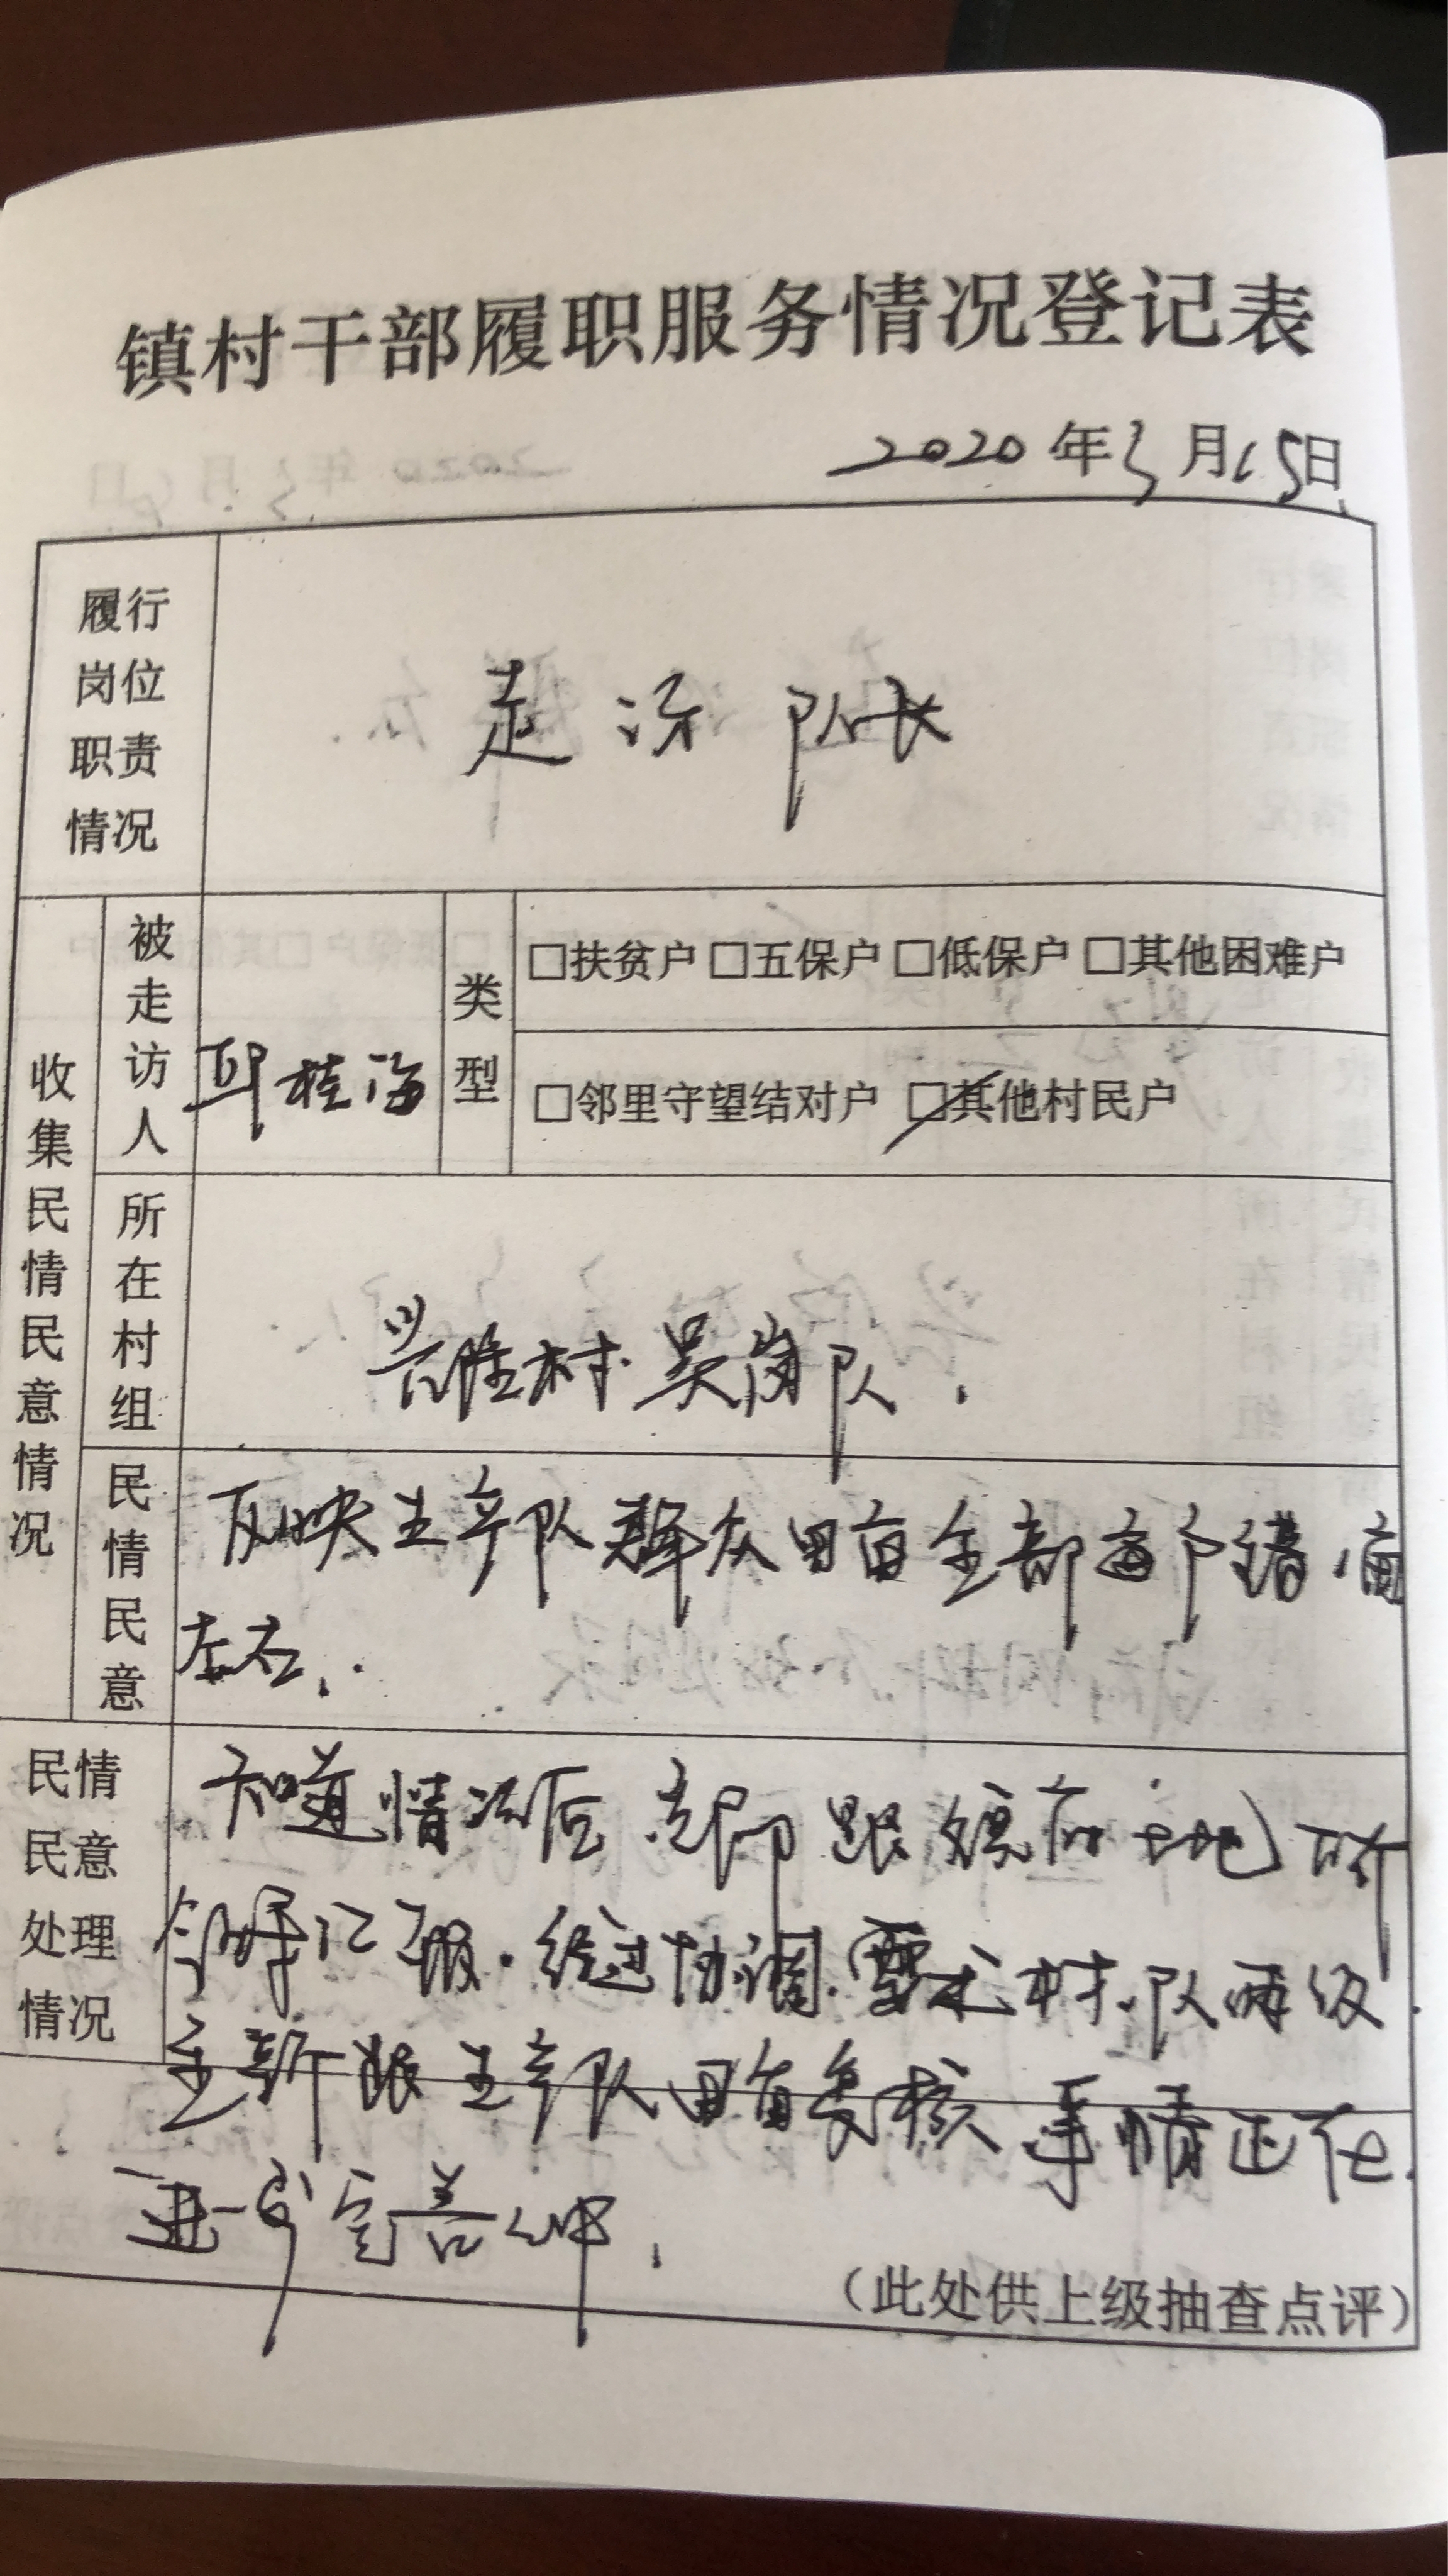 镇村干部履职服务情况登记表
2020年3月15日
履行岗位职责情况
走访队长
收集民情民意情况
被走访人
桂海
类型
□扶贫户 □五保户 □低保户 □其他困难户
□邻里守望结对户 □其他村民户
所在村组
兴胜村吴岗队.
民情民意
反映生产队群众田亩全部每户错亩
左右.
民情民意处理情况
知道情况后 立即跟镇府土地所
领导汇报.经过协调.要求村.队两级.
重新跟生产队田亩复核 事情正在.
进一步完善中.
（此处供上级抽查点评）